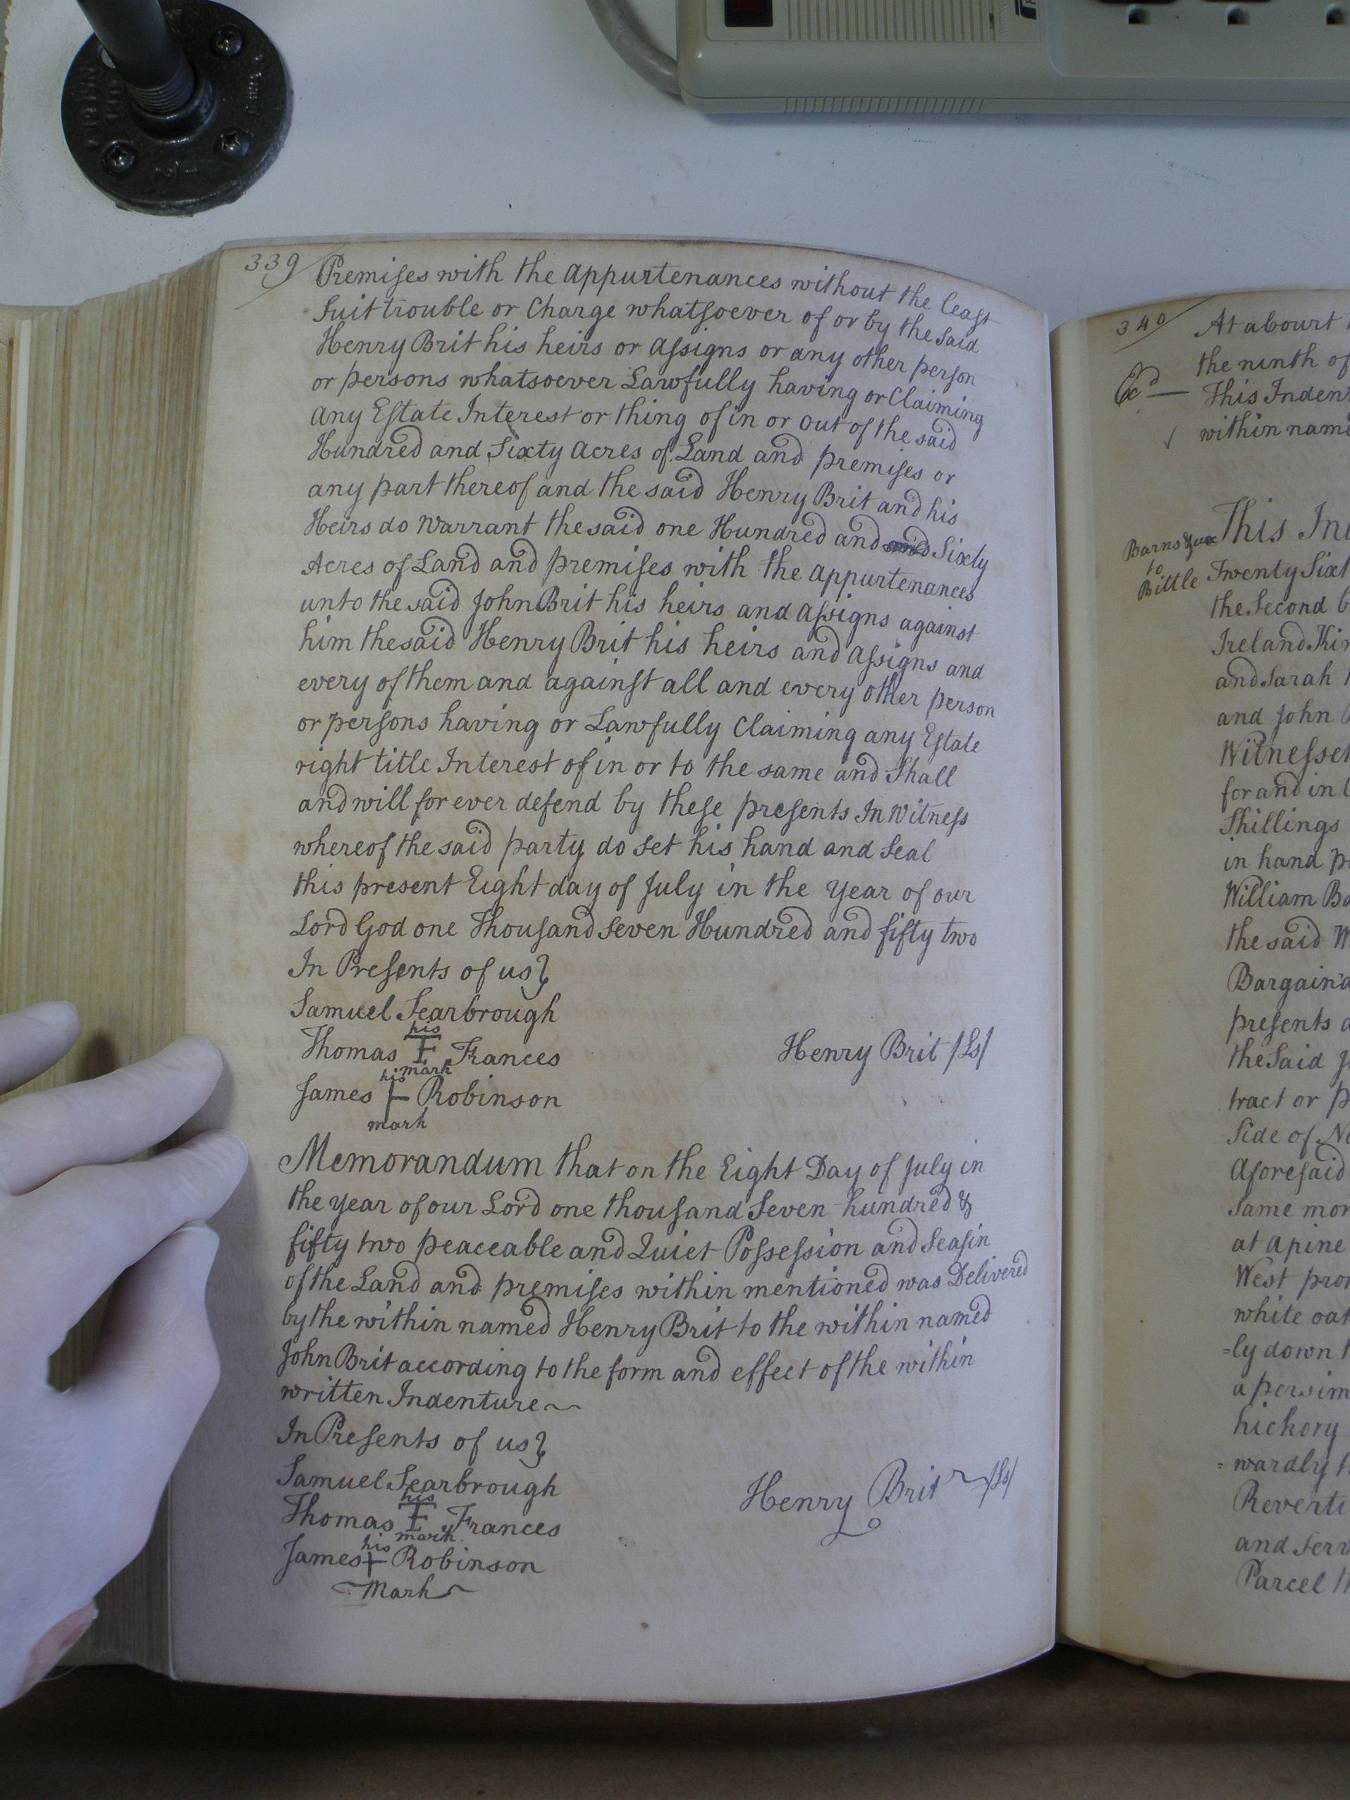 339
Premises with the appurtenances without the least
Suit trouble or Charge whatsoever of or by the Said
Henry Brit his heirs or assigns or any other person
or persons whatsoever Lawfully having or Claiming
any Estate Interest or thing of in or out of the said
Hundred and Sixty acres of Land and premises or
any part thereof and the said Henry Brit and his
Heirs do warrant the said one Hundred and and Sixty
Acres of Land and premises with the appurtenances
unto the said John Brit his heirs and assigns against
him the said Henry Brit his heirs and assigns and
every of them and against all and every other person
or persons having or Lawfully Claiming any Estate
right title Interest of in or to the same and Shall
and will for ever defend by these presents In Witness
whereof the said party do set his hand and seal
this present Eight day of July in the year of our
Lord God one Thousand Seven Hundred and fifty two
In Presents of us}
Samuel Scarbrough
his
Thomas F Frances
mark
Henry Brit /Ls/
his
James + Robinson
mark
Memorandum that on the Eight Day of July in
the year of our Lord one thousand Seven hundred &
fifty two peaceable and Quiet Possession and Seasin
of the Land and premises within mentioned was Delivered
by the within named Henry Brit to the within named
John Brit according to the form and effect of the within
written Indenture~
In Presents of us}
Samuel Scarbrough
his
Thomas F Frances
mark
Henry Brit /Ls/
his
James + Robinson
Mark
340
At a bourt
the ninth of
This Inden
within nam
Barns & ux
to
Bittle
This In
Twenty Sixt
the Second
Ireland Kin
and Sarah
and John
Witnesset
for and in
Shillings
in hand p
William Ba
the said W
Bargain'd
presents
the Said J
tract or p
Side of N
aforesaid
Same mor
at a pine
West pro
white oak
=ly down
a persim
hickory
=wardly
Reverti
and Serv
Parcel